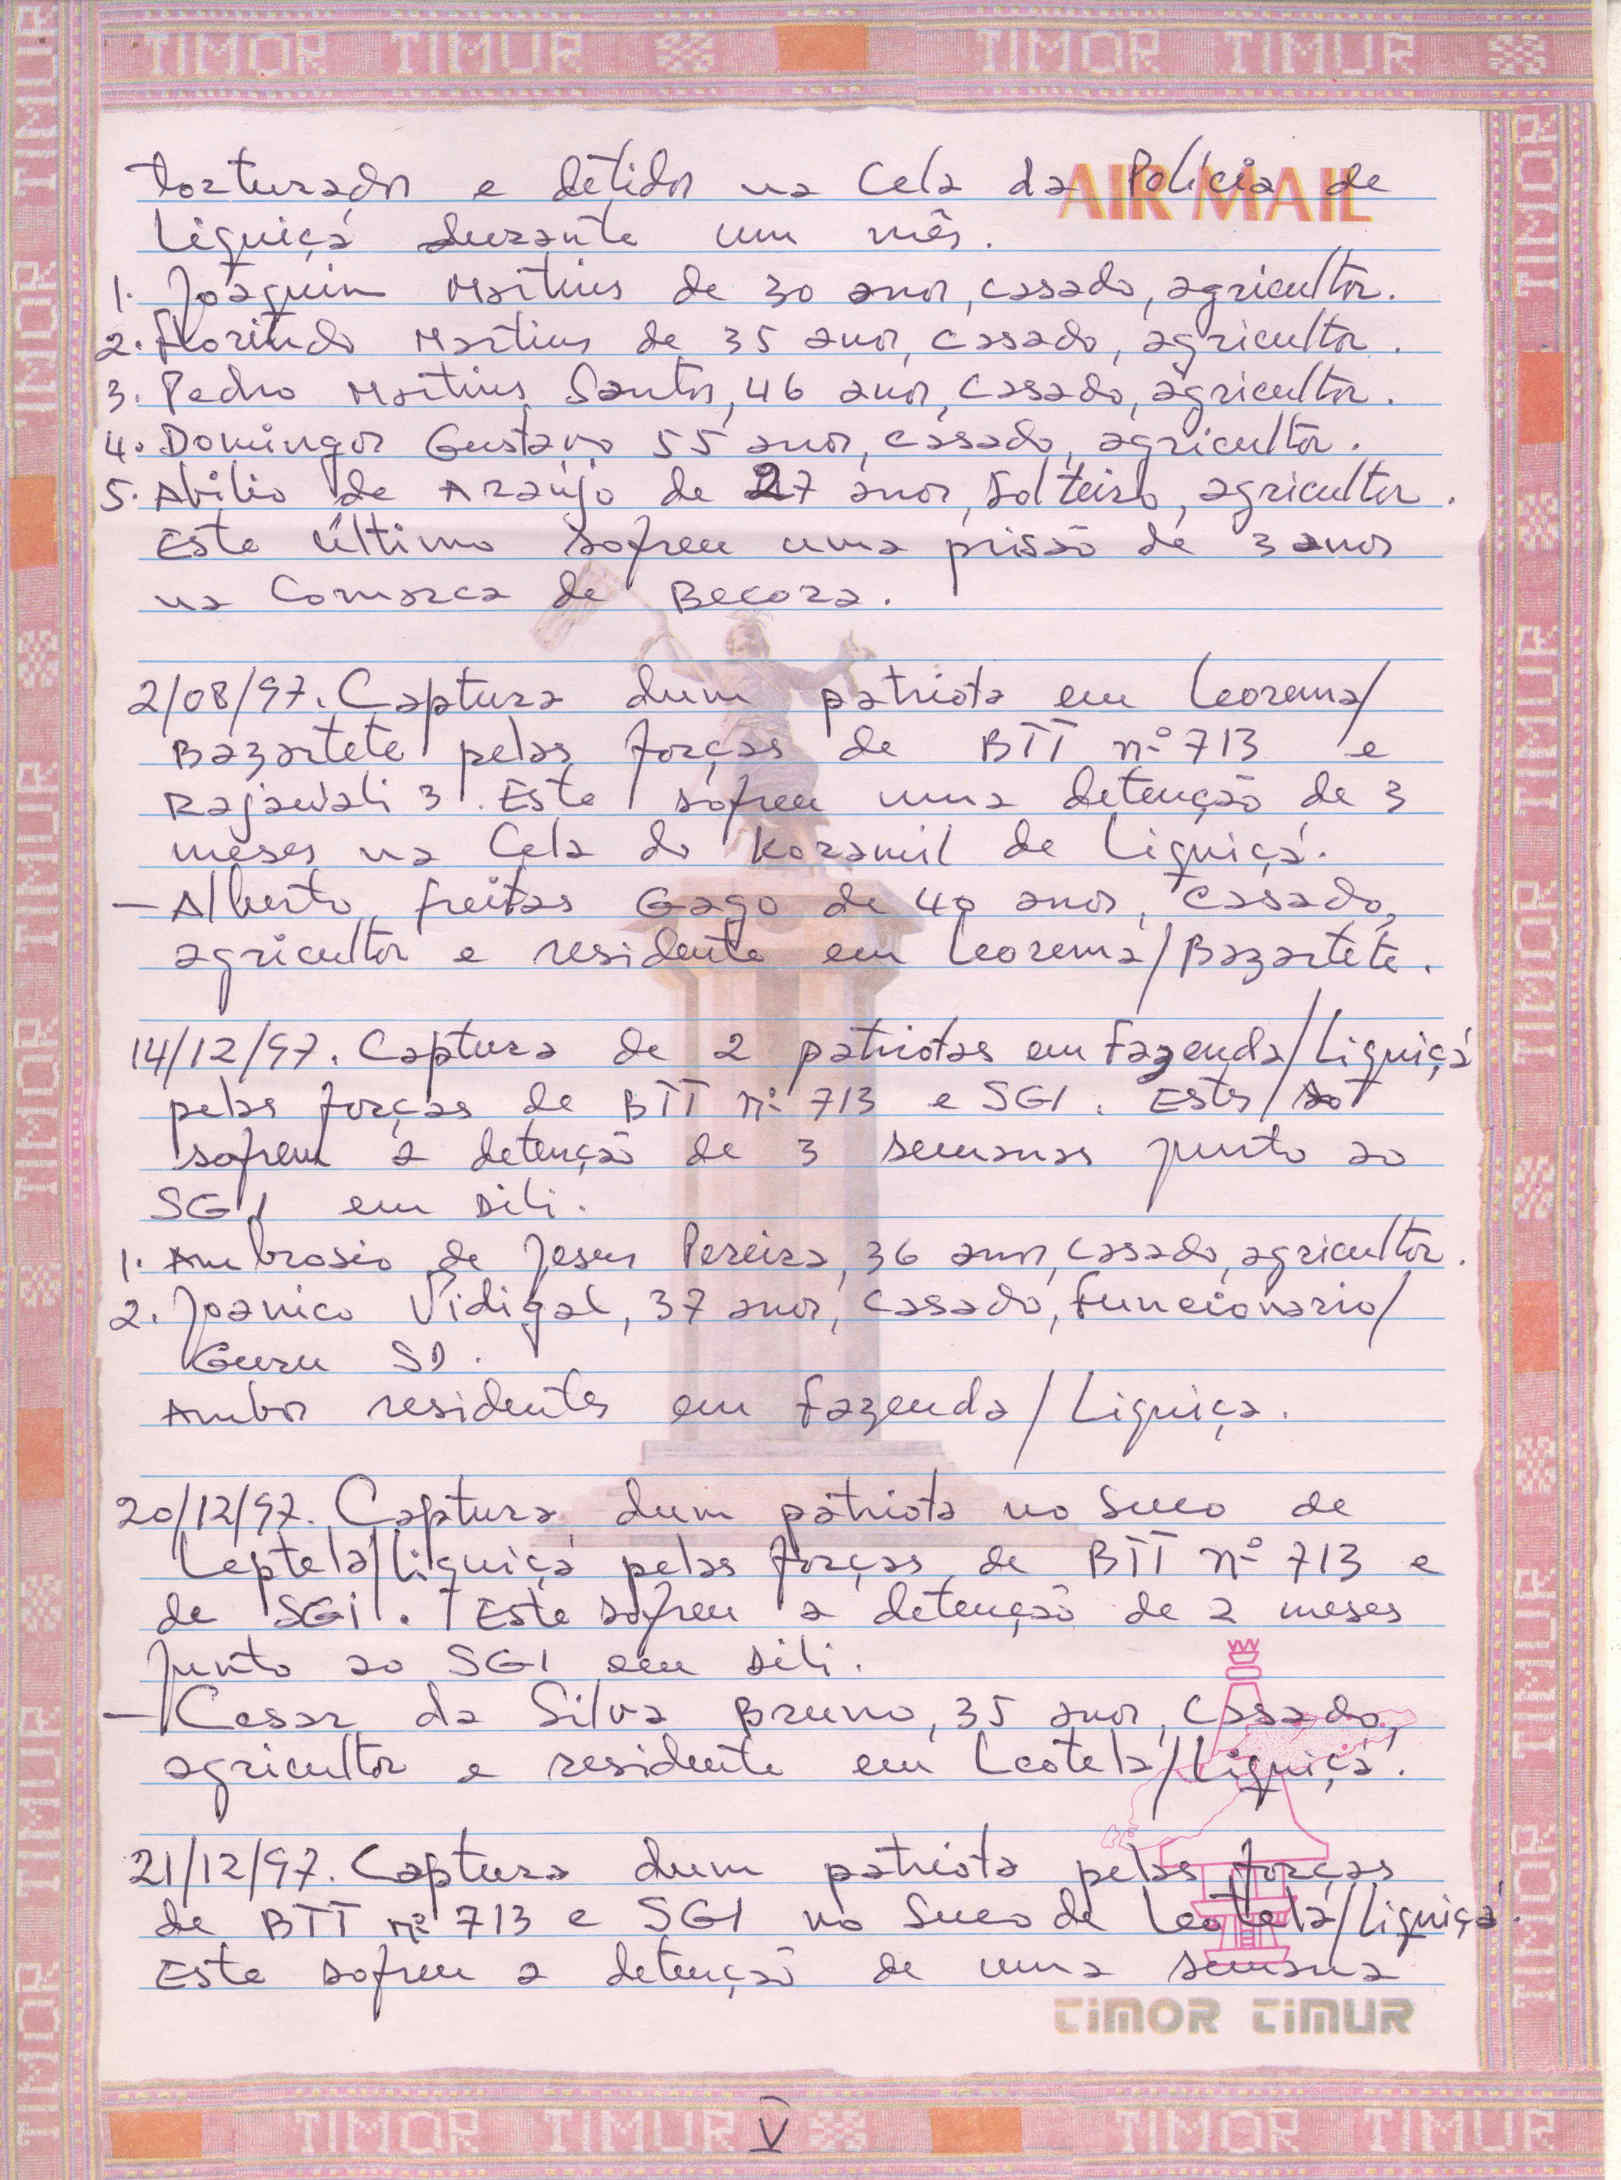 TIMOR TIMUR TIMOR TIMUR
AIR MAIL
torturados e detidos na Cela da Polícia de
Liquiçá durante um mês.
1. Joaquim Martins de 30 anos, casado, agricultor.
2. Florindo Martins de 35 anos, casado, agricultor.
3. Pedro Martins Santos, 46 anos, casado, agricultor.
4. Domingos Gustavo 55 anos, casado, agricultor.
5. Abílio de Araújo de 27 anos, solteiro, agricultor.
Este último sofreu uma prisão de 3 anos
na Comarca de Becora.
2/08/97. Captura dum patriota em Leorema/
Bazartete pelas forças de BTT nº 713 e
Rajawali 3. Este sofreu uma detenção de 3
meses na Cela do Koramil de Liquiçá.
— Alberto Freitas Gago de 40 anos, casado,
agricultor e residente em Leorema/Bazartete.
14/12/97. Captura de 2 patriotas em Fazenda/Liquiçá
pelas forças de BTT nº 713 e SGI. Estes
sofrem a detenção de 3 semanas junto ao
SGI em Dili.
1. Ambrosio de Jesus Pereira, 36 anos, casado, agricultor.
2. Joanico Vidigal, 37 anos, casado, funcionario/
Guru SD.
Ambos residentes em Fazenda/Liquiça.
20/12/97. Captura dum patriota no Suco de
Leptelá/Liquiçá pelas forças de BTT nº 713 e
de SGI. Este sofreu a detenção de 2 meses
junto ao SGI em Dili.
— Cesar da Silva Bruno, 35 anos, casado,
agricultor e residente em Leotelá/Liquiçá.
21/12/97. Captura dum patriota pelas forças
de BTT nº 713 e SGI no Suco de Leotelá/Liquiçá.
Este sofreu a detenção de uma semana
TIMOR TIMUR
V
TIMOR TIMUR TIMOR TIMUR